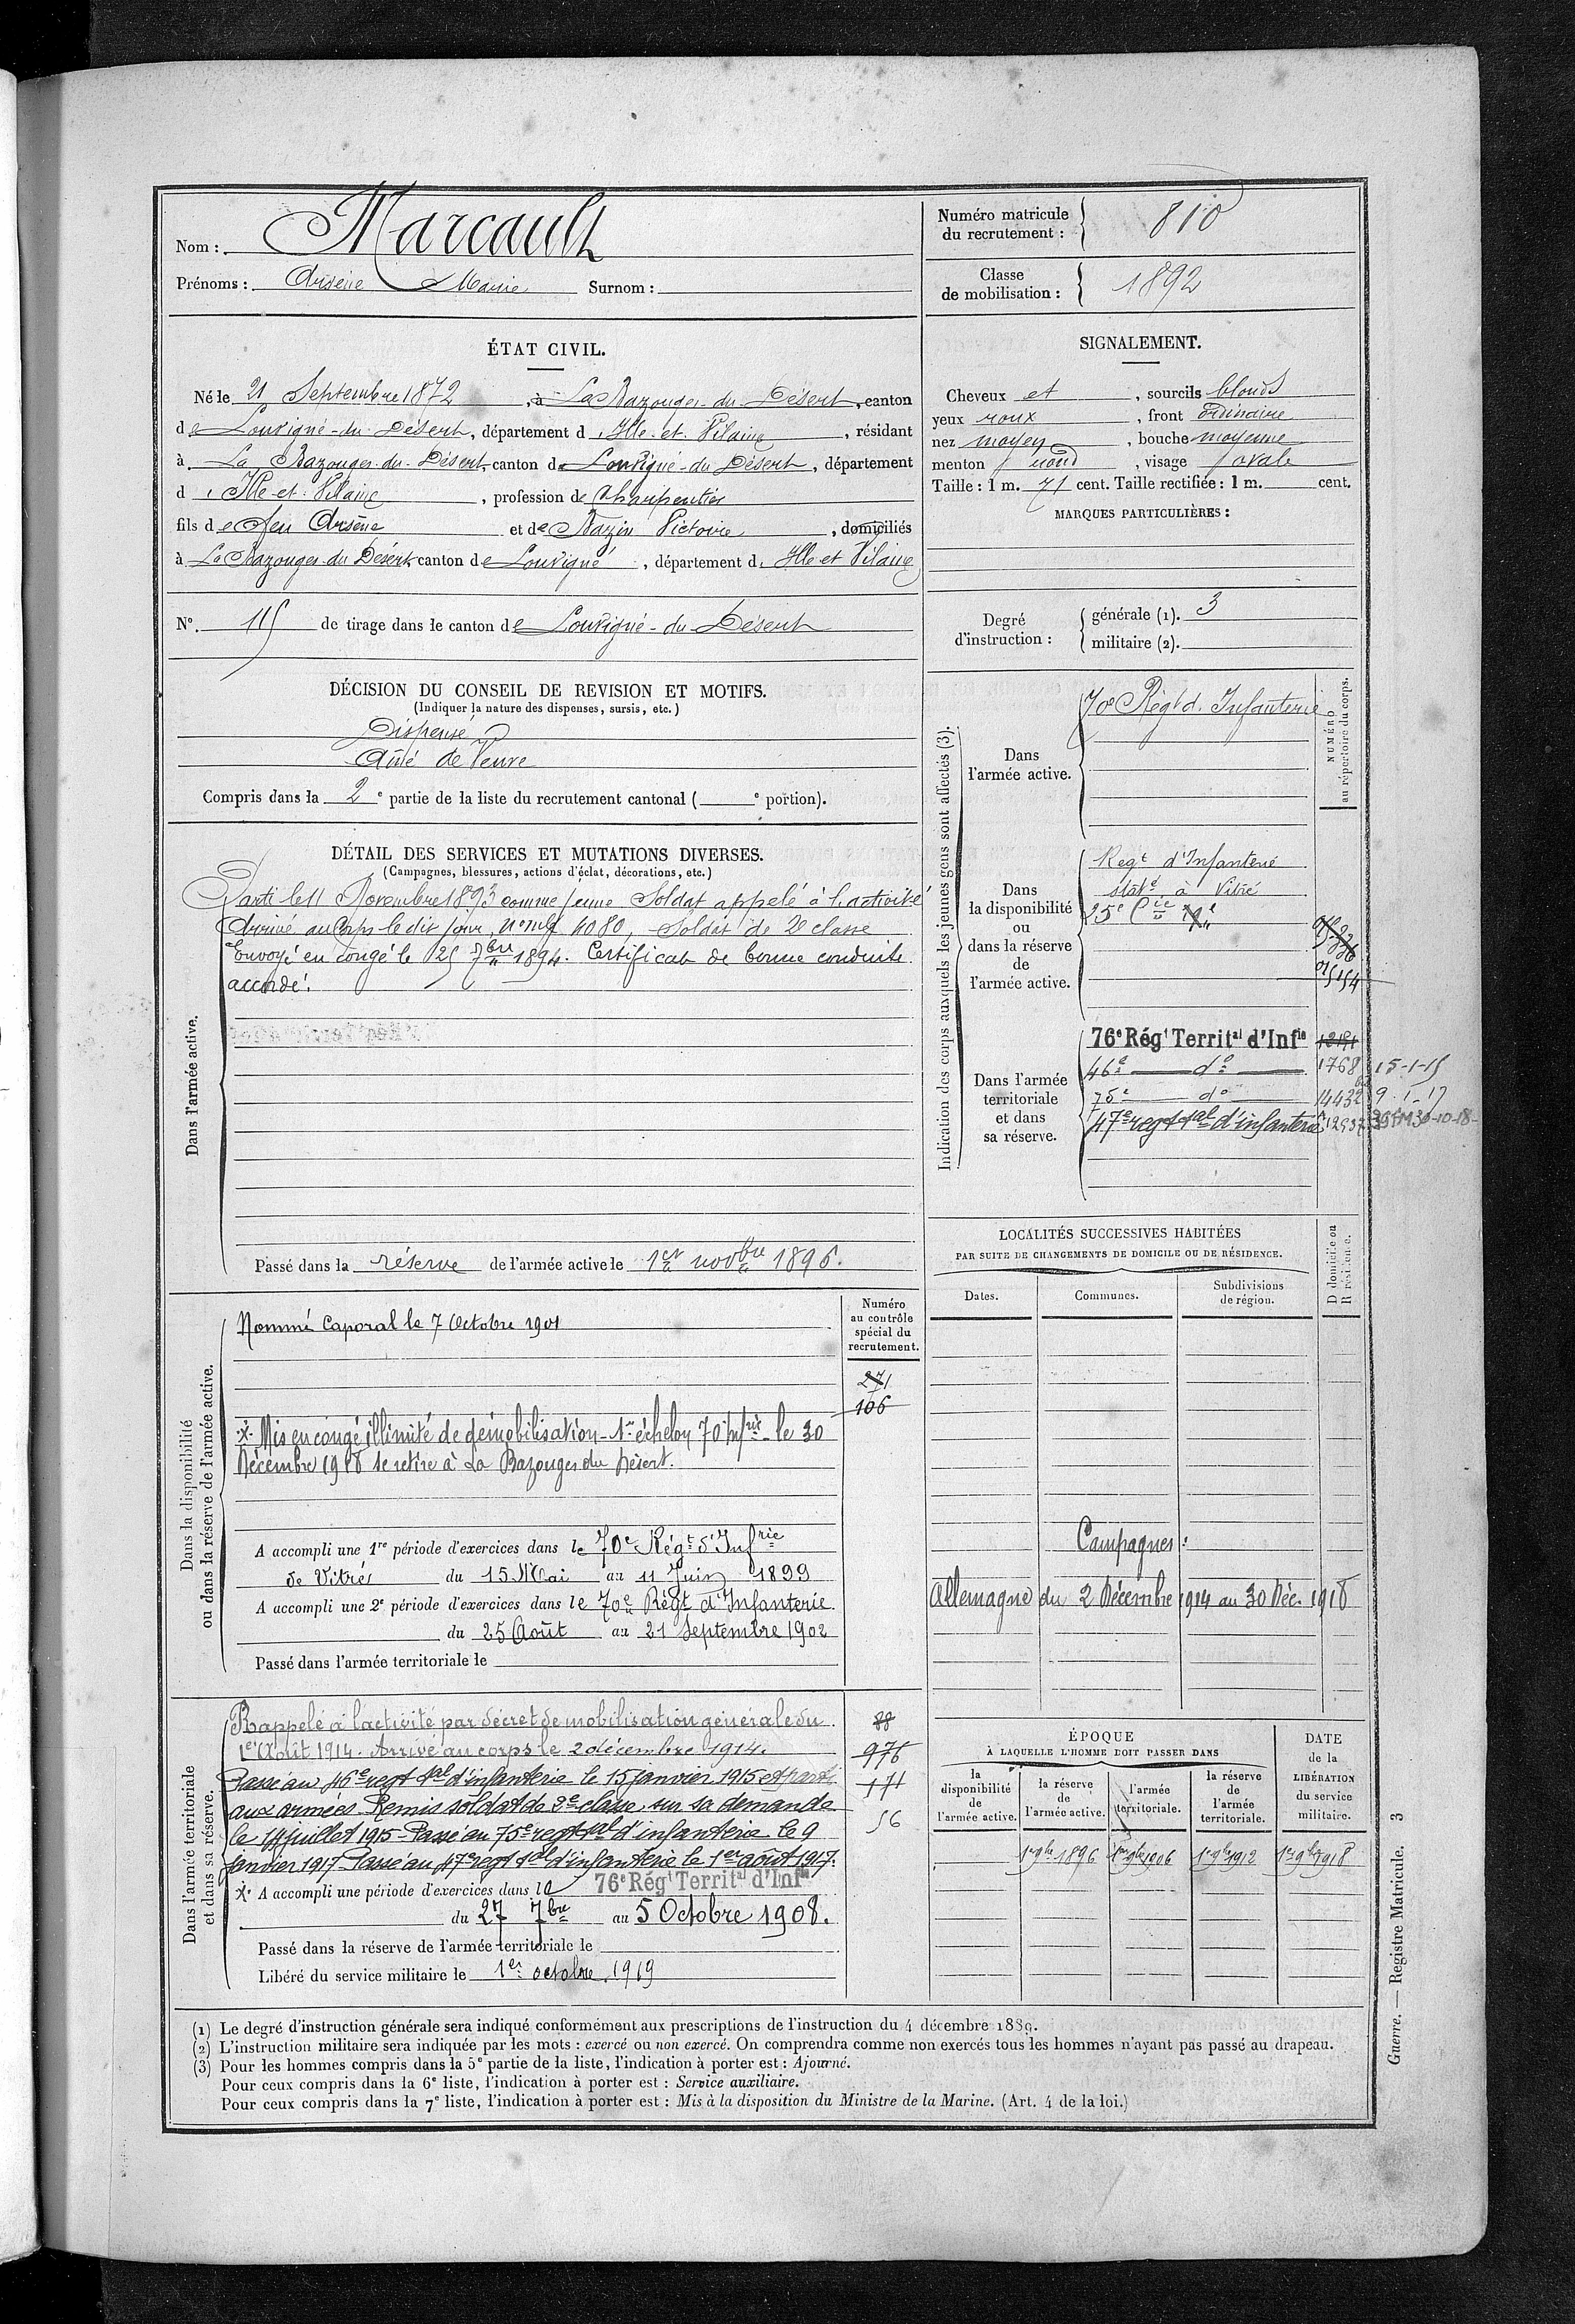 Nom : Marcault
Prénoms : Arsène Marie Surnom :
Numéro matricule du recrutement : 810
Classe de mobilisation : 1892
ÉTAT CIVIL.
Né le 21 Septembre 1872, à La Bazouges-du-Désert, canton
de Louvigné-du-Désert, département d'Ille-et-Vilaine, résidant
à La Bazouges-du-Désert, canton de Louvigné-du-Désert, département
d'Ille-et-Vilaine, profession de Charpentier
fils de feu Arsène et de Bazin Victoire, domiciliés
à La Bazouges-du-Désert canton de Louvigné, département d'Ille et Vilaine
N° 115 de tirage dans le canton de Louvigné-du-Désert
SIGNALEMENT.
Cheveux et, sourcils blonds
yeux roux, front ordinaire
nez moyen, bouche moyenne
menton rond, visage ovale
Taille : 1 m. 71 cent. Taille rectifiée : 1 m. cent.
MARQUES PARTICULIÈRES :
Degré d'instruction : générale (1). 3
militaire (2).
DÉCISION DU CONSEIL DE REVISION ET MOTIFS.
(Indiquer la nature des dispenses, sursis, etc.)
Dispensé
Aîné de Veuve
Compris dans la 2e partie de la liste du recrutement cantonal ( e portion).
DÉTAIL DES SERVICES ET MUTATIONS DIVERSES.
(Campagnes, blessures, actions d'éclat, décorations, etc.)
Dans l'armée active.
Parti le 11 Novembre 1893 comme jeune Soldat appelé à l'activité
Arrivé au Corps le dit jour, n° mle 4080, Soldat de 2e classe
Envoyé en congé le 25 7bre 1894. Certificat de bonne conduite
accordé.
Passé dans la réserve de l'armée active le 1er novbre 1896.
Indication des corps auxquels les jeunes gens sont affectés (3).
NUMÉRO au répertoire du corps.
Dans l'armée active.
70e Régt d'Infanterie
Dans la disponibilité ou dans la réserve de l'armée active.
Regt d'Infanterie
statné à Vitré
25e Cie
Dans l'armée territoriale et dans sa réserve.
76e Régt Territal d'Infie
46e do 1768 15-1-15
75e do 14432 9-1-17
47e regt tal d'infanterie 12937 30-10-18
LOCALITÉS SUCCESSIVES HABITÉES
PAR SUITE DE CHANGEMENTS DE DOMICILE OU DE RÉSIDENCE.
Dates. Communes. Subdivisions de région. D domicile ou R résidence.
Campagnes :
Allemagne du 2 Décembre 1914 au 30 Déc. 1918
Dans la disponibilité ou dans la réserve de l'armée active.
Numéro au contrôle spécial du recrutement.
Nommé Caporal le 7 Octobre 1901
271
106
* Mis en congé illimité de démobilisation - 1er échelon 70 Infrie le 30
Décembre 1918 se retire à La Bazouges du Désert.
A accompli une 1re période d'exercices dans le 70e Régt d'Infrie
de Vitré du 15 Mai au 11 Juin 1899
A accompli une 2e période d'exercices dans le 70e Régt d'Infanterie
du 25 Août au 21 Septembre 1902
Passé dans l'armée territoriale le
Dans l'armée territoriale et dans sa réserve.
Rappelé à l'activité par décret de mobilisation générale du
1er Août 1914. Arrivé au corps le 2 décembre 1914.
Passé au 46e regt tal d'infanterie le 15 janvier 1915 et parti
aux armées. Remis soldat de 2e classe, sur sa demande
le 14 juillet 1915 - Passé au 75e regt tal d'infanterie le 9
janvier 1917. Passé au 47e regt tal d'infanterie le 1er août 1917.
88
976
171
56
* A accompli une période d'exercices dans le 76e Régt Territal d'Infie
du 27 7bre au 5 Octobre 1908.
Passé dans la réserve de l'armée territoriale le
Libéré du service militaire le 1er octobre 1919
ÉPOQUE À LAQUELLE L'HOMME DOIT PASSER DANS
la disponibilité de l'armée active. la réserve de l'armée active. l'armée territoriale. la réserve de l'armée territoriale.
DATE de la LIBÉRATION du service militaire.
1er 9bre 1896 1er 9bre 1906 1er 9bre 1912 1er 9bre 1918
(1) Le degré d'instruction générale sera indiqué conformément aux prescriptions de l'instruction du 4 décembre 1889.
(2) L'instruction militaire sera indiquée par les mots : exercé ou non exercé. On comprendra comme non exercés tous les hommes n'ayant pas passé au drapeau.
(3) Pour les hommes compris dans la 5e partie de la liste, l'indication à porter est : Ajourné.
Pour ceux compris dans la 6e liste, l'indication à porter est : Service auxiliaire.
Pour ceux compris dans la 7e liste, l'indication à porter est : Mis à la disposition du Ministre de la Marine. (Art. 4 de la loi.)
Guerre. — Registre Matricule. 3